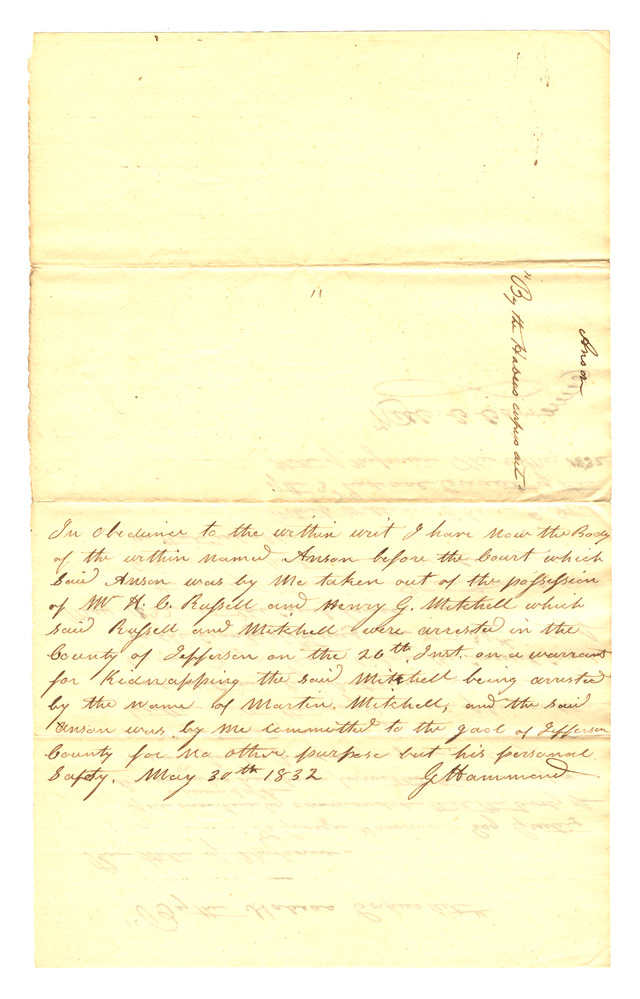 Anson
"By the Habeus corpus act"
In Obedience to the within writ I have now the Body
of the within named Anson before the Court which
Said Anson was by Me taken out of the possession
of Mr H. C. Russell and Henry G. Mitchell which
said Russell and Mitchell were arrested in the
County of Jefferson on the 26th Inst. on a warrant
for Kidnapping the said Mitchell being arrested
by the Name of Martin Mitchell, and the said
Anson was by me committed to the gaol of Jefferson
County for No other purpose but his personal
Safety. May 30th 1832 G Hammond
"By the Habeas Corpus Act"